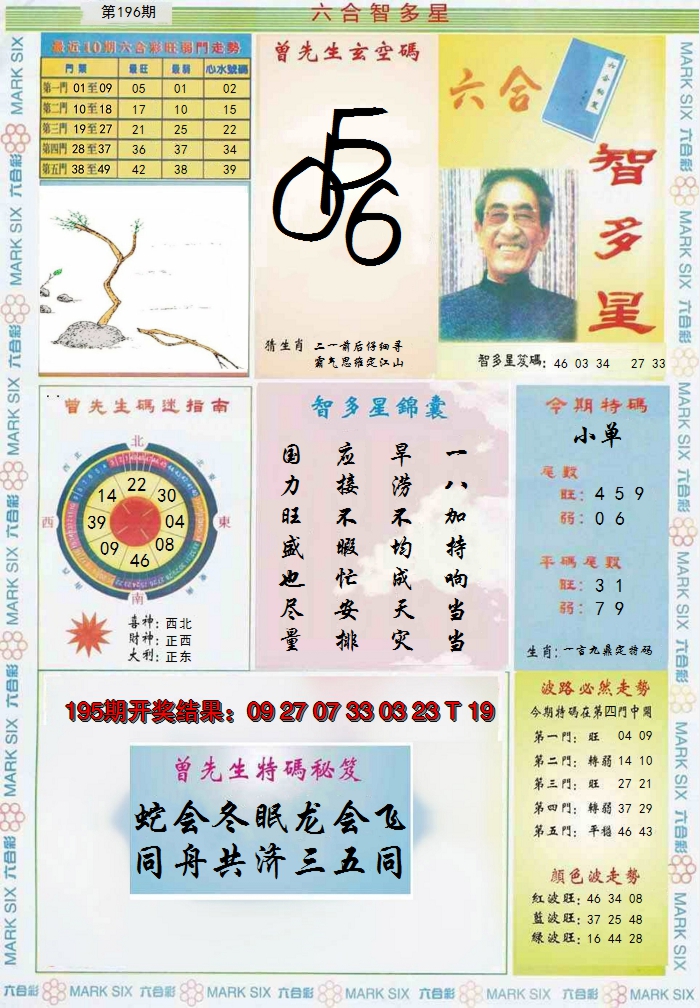 第196期
六合智多星
最近10期六合彩旺弱門走勢
門類 最旺 最弱 心水號碼
第一門 01至09 05 01 02
第二門 10至18 17 10 15
第三門 19至27 21 25 22
第四門 28至37 36 37 34
第五門 38至49 42 38 39
曾先生玄空碼
056
猜生肖 二一前后仔细寻
霸气思雍定江山
六合
智多星
智多星笈碼: 46 03 34 27 33
曾先生碼迷指南
北
西
東
南
22
14 30
39 04
09 08
46
喜神: 西北
財神: 正西
大利: 正东
智多星錦囊
一八加持响当当
旱涝不均成天灾
应接不暇忙安排
国力旺盛也尽量
今期特碼
小单
尾數
旺: 4 5 9
弱: 0 6
平碼尾數
旺: 3 1
弱: 7 9
生肖: 一言九鼎定特码
195期开奖结果: 09 27 07 33 03 23 T 19
曾先生特碼秘笈
蛇会冬眠龙会飞
同舟共济三五同
波路必然走勢
今期特碼在第四門中開
第一門: 旺 04 09
第二門: 轉弱 14 10
第三門: 旺 27 21
第四門: 轉弱 37 29
第五門: 平穩 46 43
顏色波走勢
紅波旺: 46 34 08
藍波旺: 37 25 48
绿波旺: 16 44 28
MARK SIX 六合彩